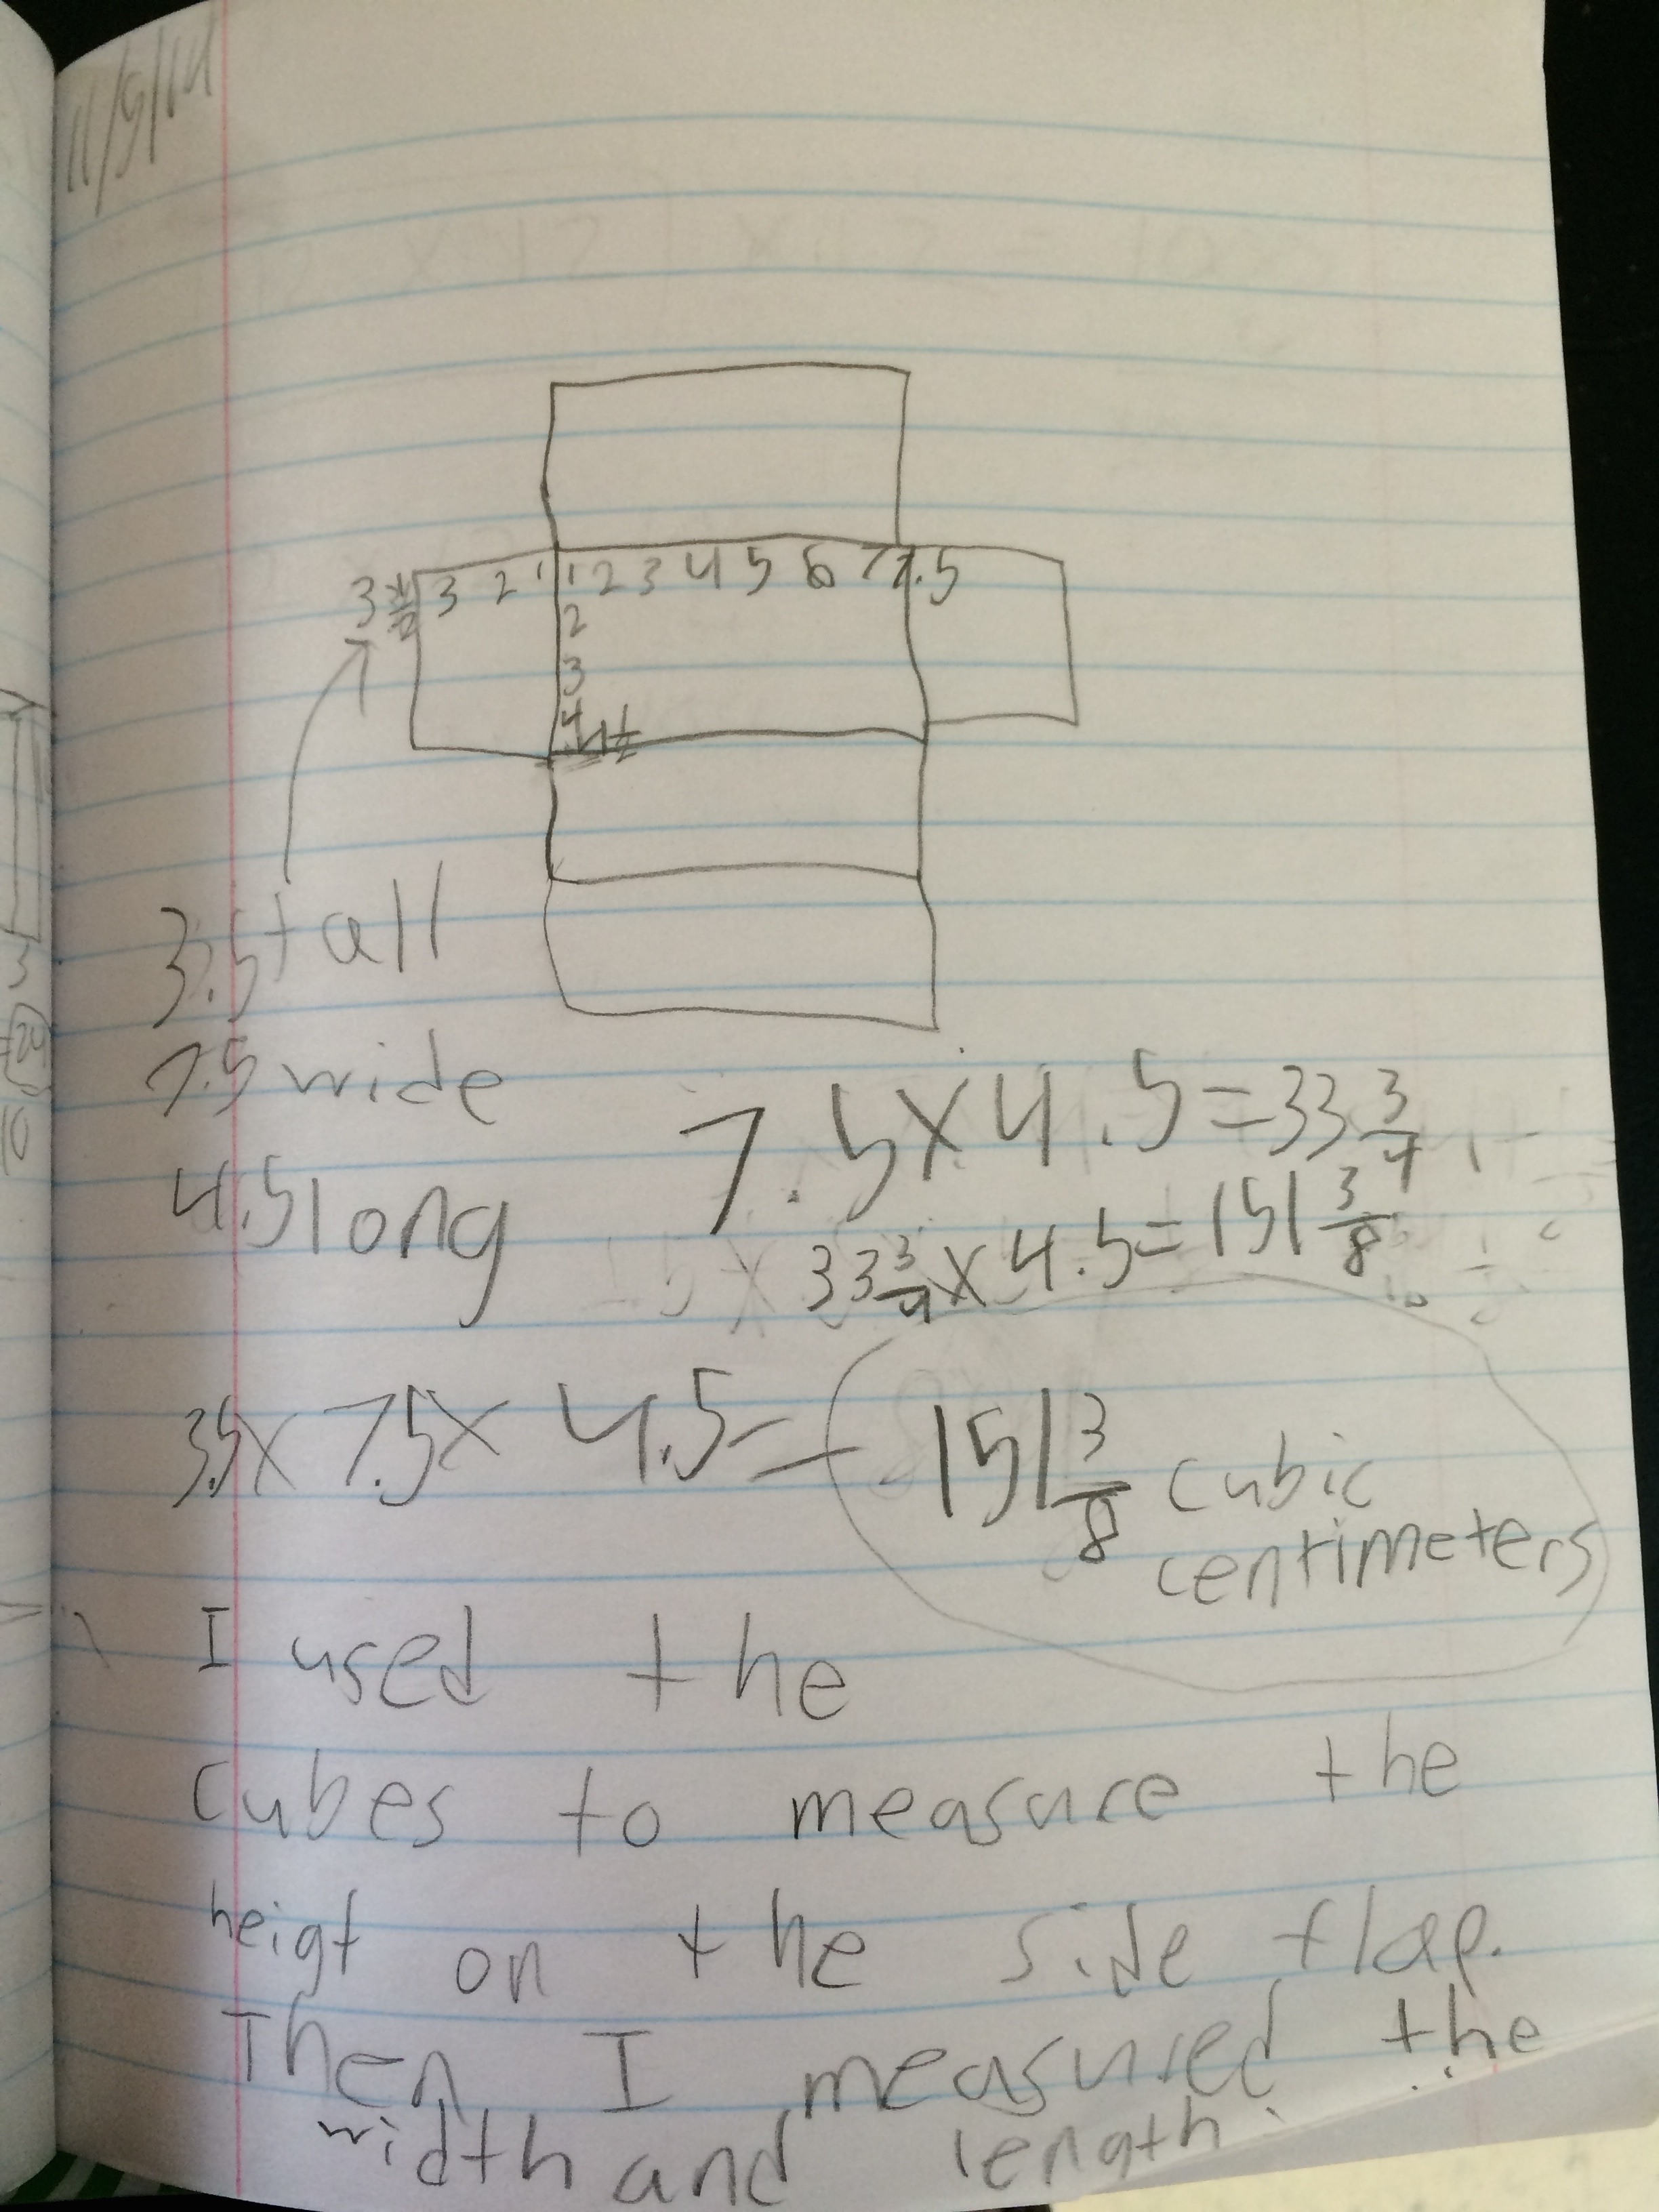 11/5/14
3 1/2 3 2 1 1 2 3 4 5 6 7 7.5
2
3
4
4 1/2
3.5 tall
7.5 wide
4.5 long
7.5 x 4.5 = 33 3/4
33 3/4 x 4.5 = 151 3/8
3.5 x 7.5 x 4.5 = 151 3/8 cubic
centimeters
I used the
cubes to measure the
heigt on the side flap.
Then I measured the
width and length.